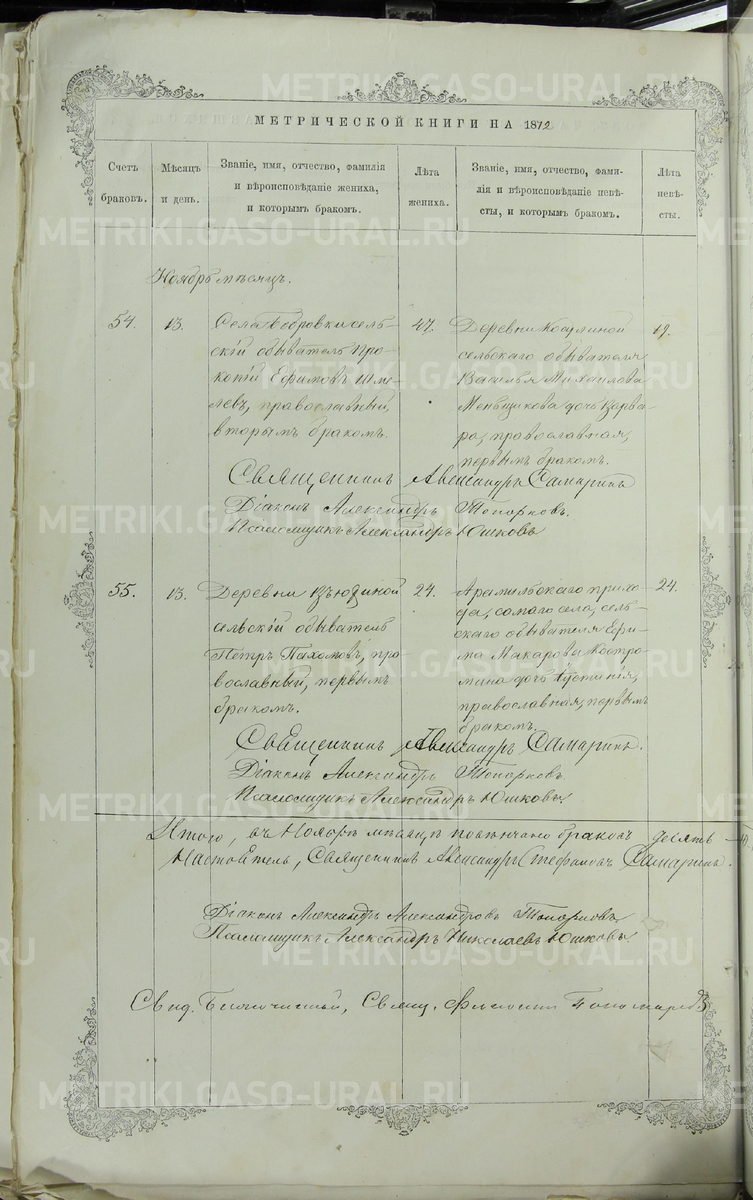 METRIKI.GASO-URAL.RU
МЕТРИЧЕСКОЙ КНИГИ НА 1872
Счетъ браковъ.
Мѣсяцъ и день.
Званіе, имя, отчество, фамилія
и вѣроисповѣданіе жениха,
и которымъ бракомъ.
Лѣта
жениха.
Званіе, имя, отчество, фами-
лія и вѣроисповѣданіе невѣ-
сты, и которымъ бракомъ.
Лѣта
невѣ-
сты.
Ноябрь мѣсяцъ.
54.
13.
Села Бобровки сель-
скій обыватель Про-
копій Ефимовъ Шме-
левъ, православный,
вторымъ бракомъ.
47.
Деревни Косулиной
сельскаго обывателя
Василья Михаилова
Меньщикова дочь Варва-
ра, православная,
первымъ бракомъ.
19.
Священникъ Александръ Самаринъ
Діаконъ Александръ Топорковъ.
Псаломщикъ Александръ Юшковъ
55.
13.
Деревни
сельскій обыватель
Петръ Пахомовъ, пра-
вославный, первымъ
бракомъ.
24.
Арамильскаго прихо-
да, самаго села, сель-
скаго обывателя Ефи-
ма Макарова Костро-
мина дочь Іустинія,
православная, первымъ
бракомъ.
24.
Священникъ Александръ Самаринъ.
Діаконъ Александръ Топорковъ
Псаломщикъ Александръ Юшковъ
Итого, въ Ноябрѣ мѣсяцѣ повѣнчано браковъ десять
Настоятель, Священникъ Александръ Стефановъ Самаринъ.
Діаконъ Александръ Александровъ Топорковъ
Псаломщикъ Александръ Николаевъ Юшковъ
Свид. Благочинный, Свящ. Пономаревъ